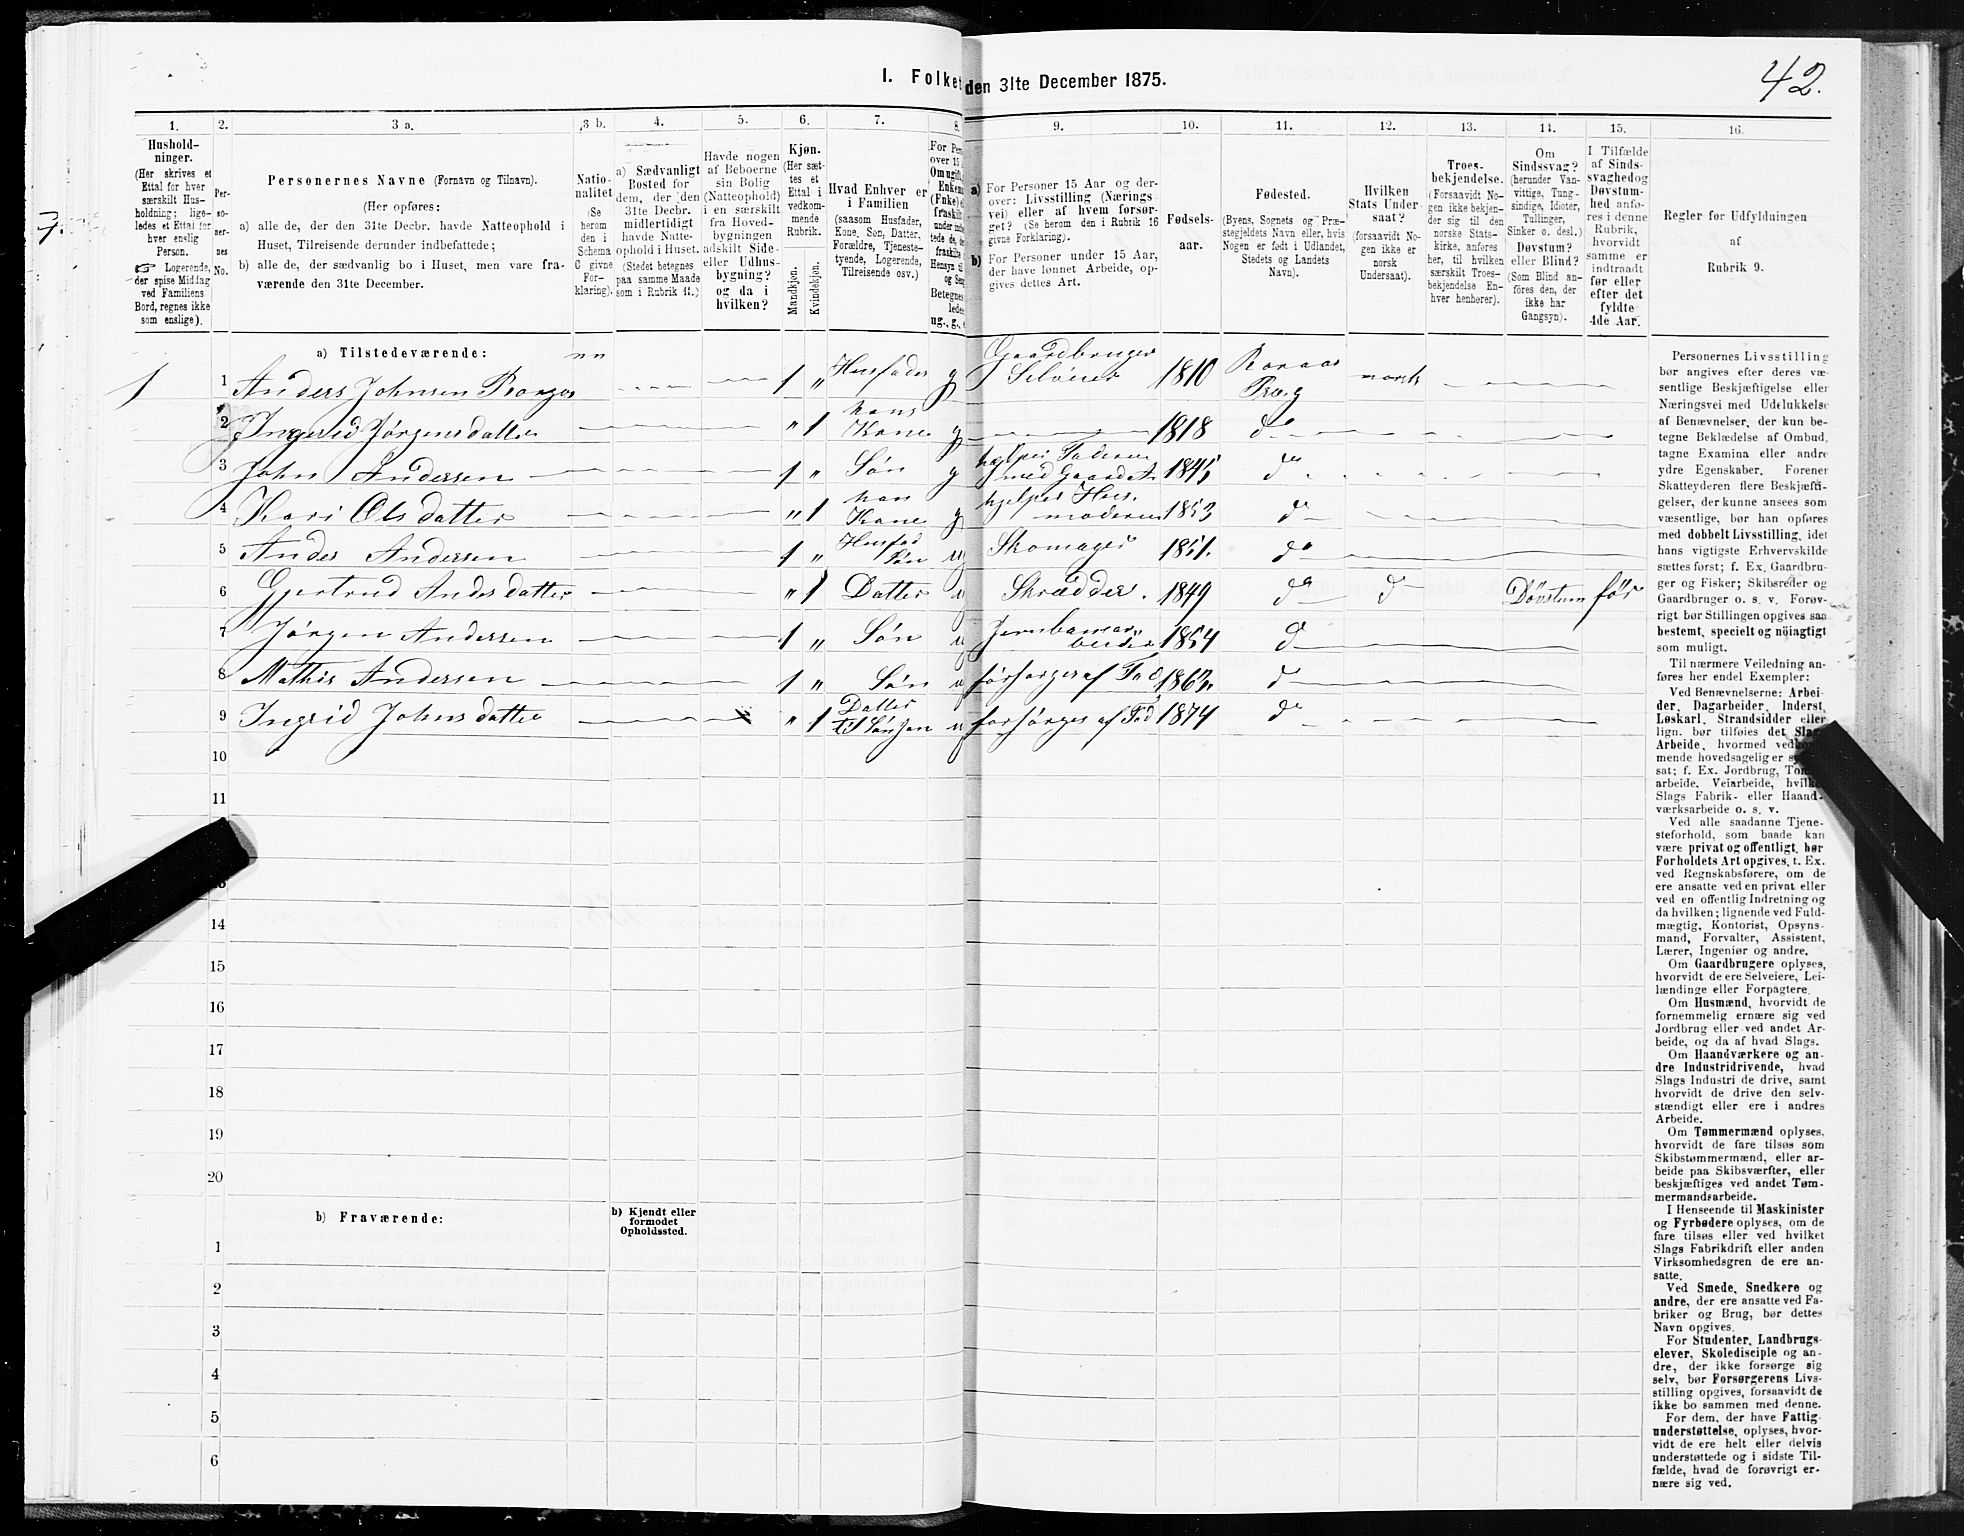 I. Folket den 31te December 1875.
42.
7.
1. 2. 3 a. 3 b. 4. 5. 6. 7. 8. 9. 10. 11. 12. 13. 14. 15. 16.
Hushold-
ninger.
(Her skrives et
Ettal for hver
særskilt Hus-
holdning; lige-
ledes et Ettal for
hver enslig
Person.
☞ Logerende,
der spise Middag
ved Familiens
Bord, regnes ikke
som enslige).
Per-
so-
ner-
nes
No.
Personernes Navne (Fornavn og Tilnavn).
(Her opføres:
a) alle de, der den 31te Decbr. havde Natteophold i
Huset, Tilreisende derunder indbefattede;
b) alle de, der sædvanlig bo i Huset, men vare fra-
værende den 31te December.
Natio-
nalitet
(Se
herom
den i
Schema
C givne
For-
klaring).
a) Sædvanligt
Bosted for
dem, der den
31te Decbr.
midlertidigt
havde Natte-
ophold i Huset.
(Stedet betegnes
paa samme Maade
som i Rubrik 11.)
Havde nogen
af Beboerne
sin Bolig
(Natteophold)
i en særskilt
fra Hoved-
bygningen
adskilt Side-
eller Udhus-
bygning?
og da i
hvilken?
Kjøn.
(Her sæt-
tes et
Ettal i
vedkom-
mende
Rubrik.
Mandkjøn.
Kvindekjøn.
Hvad Enhver er
i Familien
(saasom Husfader,
Kone, Søn, Datter,
Forældre, Tjeneste-
tyende, Logerende,
Tilreisende osv.)
For Per
over 15
Om ugift,
Enkem
(Fnke)
fraskilt
a) For Personer 15 Aar og der-
over: Livsstilling (Nærings-
vei) eller af hvem forsør-
get? (Se herom den i Rubrik 16
givne Forklaring).
b) For Personer under 15 Aar,
der have lønnet Arbeide, op-
gives dettes Art.
Fødsels-
aar.
Fødested.
(Byens, Sognets og Præ-
stegjeldets Navn eller, hvis
Nogen er født i Udlandet,
Stedets og Landets
Navn).
Hvilken
Stats Under-
saat?
(forsaavidt No-
gen ikke er
norsk
Undersaat).
Troes-
bekjendelse.
(Forsaavidt No-
gen ikke bekjen-
der sig til den
norske Stats-
kirke, anføres
her, til hvilken
særskilt Troes-
bekjendelse En-
hver henhører).
Om
Sindssvag?
(herunder Van-
vittige, Tung-
sindige, Idioter,
Tullinger,
Sinker o. desl.)
Døvstum?
eller Blind?
(Som Blind an-
føres den, der
ikke har
Gangsyn).
I Tilfælde
af Sinds-
svaghed og
Døvstum-
hed anfø-
res i denne
Rubrik,
hvorvidt
samme er
indtraadt
før eller
efter det
fyldte
4de Aar.
Regler for Udfyldningen
af
Rubrik 9.
a) Tilstedeværende:
1 1 Anders Johnsen 1 „ Husfader g Gaardbruger Seleier 1810 Røraas Præg norsk
2 Ingerid Jørgensdatter „ 1 hans Kone g 1818 do
3 John Andersen 1 „ Søn g hjelper Faderen med Gaarden 1845 do
4 Kari Olsdatter „ 1 hans Kone g hjelper Husmoderen 1853 do
5 Anders Andersen 1 „ Husfad Søn u Skomager 1851. do
6 Gjertrud Andersdatter „ 1 Datter u Skrædder. 1849 do do Døvstum før
7 Jørgen Andersen 1 „ Søn u Jernbanearbeider 1854 do
8 Mathis Andersen 1 „ Søn u forsørges af Fad 1863. do
9 Ingrid Johnsdatter x „ 1 Datter til Sønnen u forsørges af Fad 1874 do
10
11
13
14
15
16
17
18
19
20
b) Fraværende:
b) Kjendt eller
formodet
Opholdssted.
1
2
3
4
5
6
Personernes Livsstilling
bør angives efter deres væ-
sentlige Beskjæftigelse eller
Næringsvei med Udelukkelse
af Benævnelser, der kun be-
tegne Beklædelse af Ombud,
tagne Examina eller andre
ydre Egenskaber. Forener
Skatteyderen flere Beskjæfti-
gelser, der kunne ansees som
væsentlige, bør han opføres
med dobbelt Livsstilling, idet
hans vigtigste Erhvervskilde
sættes først; f. Ex. Gaardbru-
ger og Fisker; Skibsreder og
Gaardbruger o. s. v. Forøv-
rigt bør Stillingen opgives saa
bestemt, specielt og nøiagtigt
som muligt.
Til nærmere Veiledning an-
føres her endel Exempler:
Ved Benævnelserne: Arbei-
der, Dagarbeider, Inderst,
Løskarl, Strandsidder eller
lign. bør tilføies det Slags
Arbeide, hvormed vedkom-
mende hovedsagelig er
sat; f. Ex. Jordbrug, Tom
arbeide, Veiarbeide, hvilket
Slags Fabrik- eller Haand-
værksarbeide o. s. v.
Ved alle saadanne Tjene-
steforhold, som baade kan
være privat og offentligt, bør
Forholdets Art opgives, t. Ex.
ved Regnskabsførere, om de
ere ansatte ved en privat eller
ved en offentlig Indretning og
da hvilken; lignende ved Fuld-
mægtig, Kontorist, Opsyns-
mand, Forvalter, Assistent,
Lærer, Ingeniør og andre.
Om Gaardbrugere oplyses,
hvorvidt de ere Selveiere, Lei-
lændinge eller Forpagtere.
Om Husmænd, hvorvidt de
fornemmelig ernære sig ved
Jordbrug eller ved andet Ar-
beide, og da af hvad Slags.
Om Haandværkere og an-
dre Industridrivende, hvad
Slags Industri de drive, samt
hvorvidt de drive den selv-
stændigt eller ere i andres
Arbeide.
Om Tømmermænd oplyses,
hvorvidt de fare tilsøs som
Skibstømmermænd, eller ar-
beide paa Skibsværfter, eller
beskjæftiges ved andet Tøm-
mermandsarbeide.
I Henseende til Maskinister
og Fyrbødere oplyses, om de
fare tilsøs eller ved hvilket
Slags Fabrikdrift eller anden
Virksomhedsgren de ere an-
satte.
Ved Smede, Snedkere og
andre, der ere ansatte ved Fa-
briker og Brug, bør dettes
Navn opgives.
For Studenter, Landbrugs-
elever, Skoledisciple og an-
dre, der ikke forsørge sig
selv, bør Forsørgerens Livs-
stilling opgives, forsaavidt de
ikke bo sammen med denne.
For dem, der have Fattig-
understøttelse, oplyses, hvor-
vidt de ere helt eller delvis
understøttede og i sidste Til-
fælde, hvad de forøvrigt er-
nære sig ved.